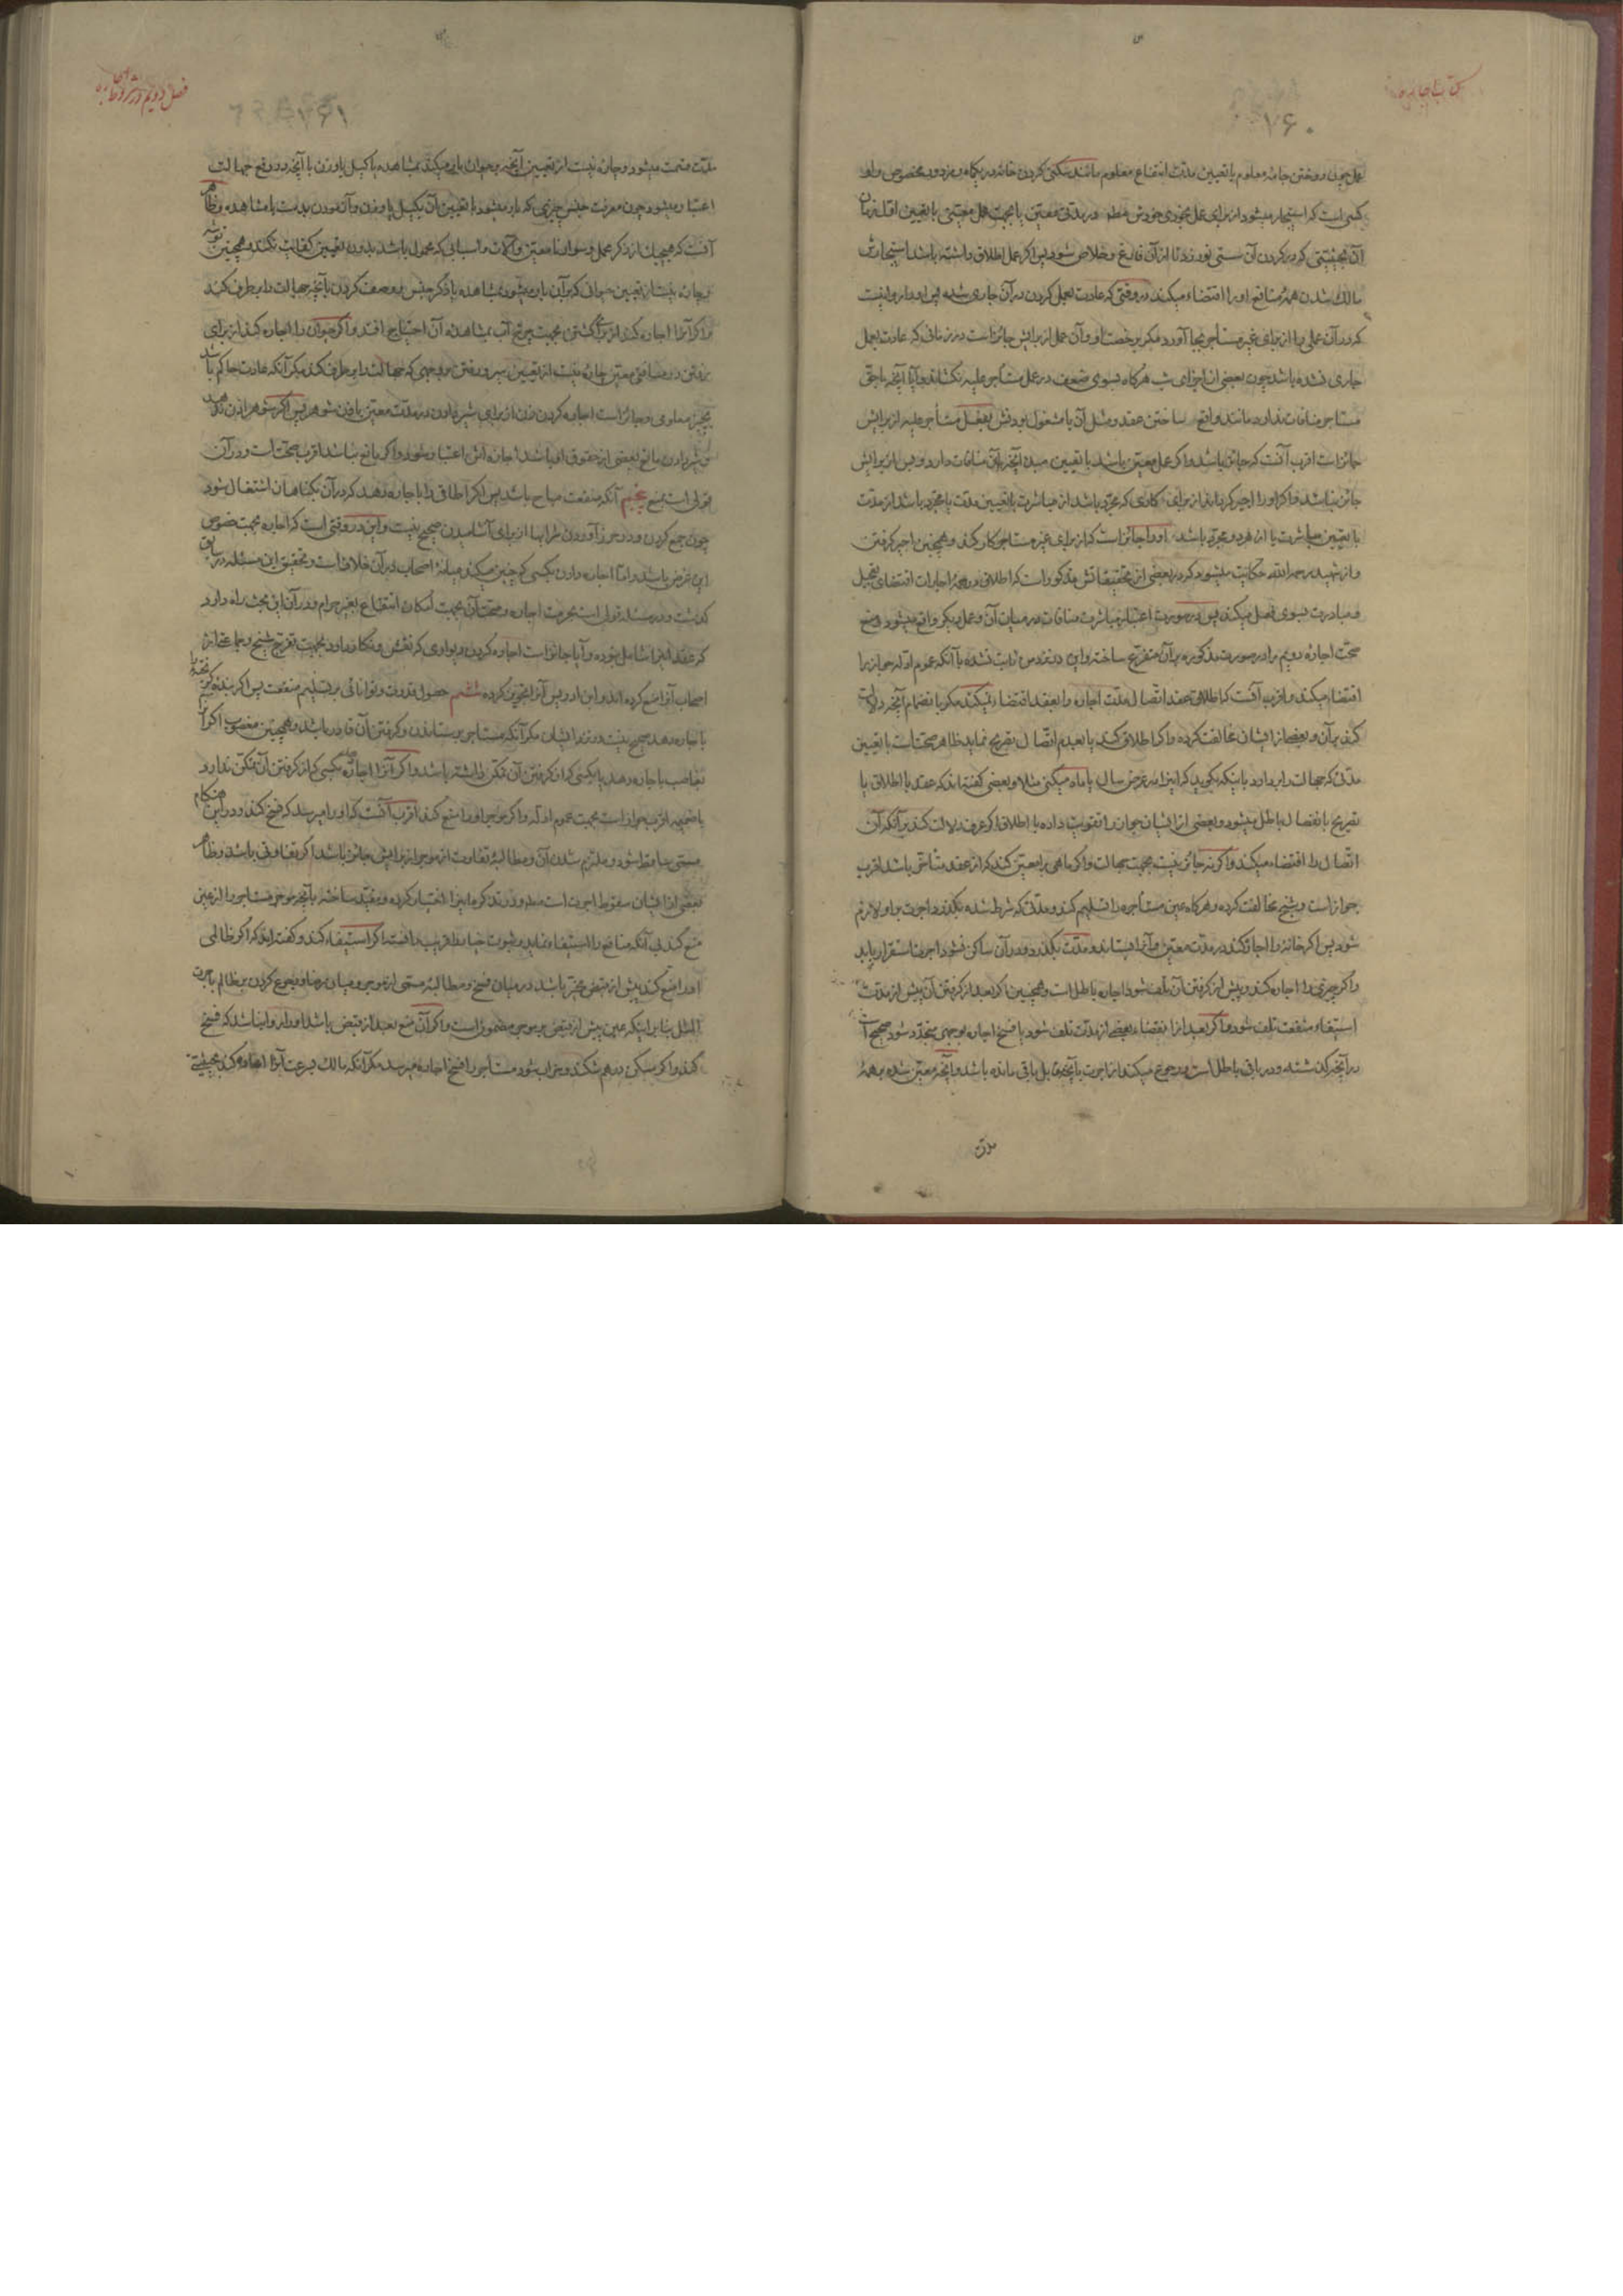 کتاب اجاره
۷۶۰
بعمل چون دوختن جامه معلوم یا تعیین مدت انتفاع معلوم مانند سکنی کردن خانه در یکماه و مزدور مخصوص و او
کسی است که استیجار میشود از برای عمل بخودی خودش در مدتی معین یا بجهت عمل معینی با تعیین اقل زمان
آن بحیثیتی که در کردن آن سستی نورزد تا از آن فارغ و خلاص شود پس اگر عمل اطلاق داشته باشد استیجارش
مالک شدن همهٔ منافع او را اقتضاء میکند در وقتی که عادت بعمل کردن در آن جاری شده پس او را روا نیست
که در آن عملی را از برای غیر مستأجر بجا آورد مگر برخصت او و آن عمل از برایش جائز است در زمانی که عادت بعمل
جاری نشده باشد چون بعضی از اجزای شب هرگاه بسوی ضعف در عمل مستأجر علیه نکشاند و آیا آنچه با حق
مستاجر منافات ندارد مانند واقع ساختن عقد و مثل آن با مشغول بودنش بفعل مستأجر علیه از برایش
جائز است اقرب آنست که جائز باشد و اگر عمل معین باشد با تعیین مبدء آنچه با آن منافات دارد و پس از برایش
جائز نباشد و اگر او را اجیر کرد از برای کاری که مجرد باشد از مباشرت با تعیین مدت یا مجرد باشد از مدت
با تعیین مباشرت یا از هر دو مجرد باشد او را جائز است که از برای غیر مستاجر کار کند و همچنین اجیر گرفتن
و از شهید رحمه الله حکایت میشود که در بعضی از تحقیقاتش مذکور است که اطلاق در همهٔ اجارات اقتضای تعجیل
و مبادرت بسوی فعل میکند پس در صورت اعتبار مباشرت منافات در میان آن و عمل دیگر واقع میشود و منع
صحّت اجارهٔ دویم را در صورت مذکوره بر آن متفرع ساخته و این در نزد من ثابت نشده با آنکه عموم ادله جواز را
اقتضاء میکند و اقرب آنست که اطلاق عقد اتصال مدت اجاره را بعقد اقتضاء نمیکند مگر با انضمام آنچه دلالت
کند بر آن و بعضی از ایشان مخالفت کرده و اگر اطلاق کند یا بعدم اتصال تصریح نماید ظاهر صحّت است با تعیین
مدتی که جهالت را بردارد باینکه بگوید که این را در عرض سال یا ماه میکنی مثلا و بعضی گفته‌اند که عقد با اطلاق یا
تصریح بانفصال باطل میشود و بعضی از ایشان جواز را تقویت داده با اطلاق اگر عرف دلالت کند بر آنکه آن
اتصال را اقتضاء میکند و اگر نه جائز نیست بجهت جهالت و اگر ماهی را معین کند که از عقد متأخر باشد اقرب
جواز است و شیخ مخالفت کرده و هرگاه عین مستأجره را تسلیم کند و مدتی که شرط شده بگذرد اجرت بر او لازم
شود پس اگر خانهٔ را اجاره کند در مدت معین و آنرا بستاند و مدت بگذرد و در آن ساکن نشود اجرت استقرار یابد
و اگر چیزی را اجاره کند و پیش از گرفتن آن تلف شود اجاره باطل است و همچنین اگر بعد از گرفتن آن پیش از مدت
استیفاء منفعت تلف شود و اگر بعد از انقضاء بعضی از مدت تلف شود یا فسخ اجاره بوجهی متجدد شود صحیح است
در آنچه گذشته و در باقی باطل است و رجوع میکند از اجرت بآنچه مقابل باقی مانده باشد و آنچه معین شده بر همهٔ
مدت
فصل دویم در شروط اجاره
۷۶۱
مدت قسمت میشود و چاره نیست از تعیین آنچه بر حیوان بار میکند بمشاهده یا کیل یا وزن با آنچه در رفع جهالت
اعتبار میشود چون معرفت جنس چیزی که بار میشود با تعیین آن بکیل یا وزن و آزمودن بدست یا مشاهده و ظاهر
آنست که هیچیک از ذکر عمل و سواری نامعین و آلات و اسبابی که محمول باشد بدون تعیین کفایت نکند و همچنین توشه
و چاره نیست از تعیین حیوانی که بر آن بار میشود بمشاهده یا ذکر جنس و وصف کردن بآنچه جهالت را برطرف کند
و اگر آنرا اجاره کند از برای گشتن بجهت چرخ آب بمشاهدهٔ آن احتیاج افتد و اگر حیوان را اجاره کند از برای
رفتن در مسافتی معین چاره نیست از تعیین سیر و رفتن بر وجهی که جهالت را برطرف کند مگر آنکه عادت حاکم باشد
بچیز معلومی و جائز است اجاره کردن زن از برای شیر دادن در مدت معین باذن شوهر پس اگر شوهر اذن ندهد
و شیر دادن مانع بعضی از حقوق او باشد اجاره‌اش اعتبار نشود و اگر مانع نباشد اقرب صحّت است و در آن
قولی است بمنع پنجم آنکه منفعت مباح باشد پس اگر اطاقی را باجاره دهد که در آن بگناهان اشتغال شود
چون جمع کردن و در حرز آوردن شرابها از برای آشامیدن صحیح نیست و این در وقتی است که اجاره بجهت خصوص
این غرض باشد و امّا اجاره دادن بکسی که چنین میکند میانهٔ اصحاب در آن خلافست و تحقیق این مسئله در سابق
گذشت و در مسئله قولی است بحرمت اجاره و صحّت آن بجهت امکان انتفاع بغیر حرام و در آن این بحث راه دارد
که عقد او را شامل نبوده و آیا جائز است اجاره کردن دیواری که نقش و نگار دارد بجهت تفرج شیخ و جماعتی از
اصحاب آنرا منع کرده‌اند و ابن ادریس آنرا تجویز کرده ششم حصول قدرت و توانائی بر تسلیم منفعت پس اگر بندهٔ گریخته را
باجاره دهد صحیح نیست در نزد ایشان مگر آنکه مستاجر بر ستاندن و گرفتن آن قادر باشد و همچنین مغصوب اگر آنرا
بغاصب باجاره دهد یا بکسی که از گرفتن آن تمکن داشته باشد و اگر آنرا اجاره دهد بکسی که از گرفتن آن تمکن ندارد
با ضمیمه اقرب جواز است بجهت عموم ادله و اگر موجر او را منع کند اقرب آنست که او را میرسد که فسخ کند و در این هنگام
مسمّی ساقط شود و ملتزم شدن آن و مطالبهٔ تفاوت از موجر از برایش جائز باشد اگر تفاوتی باشد و ظاهر
بعضی از ایشان سقوط اجرت است و در تذکره این را اختیار کرده و مقید ساخته بآنچه موجر مستاجر را از عین
منع کند بی آنکه منافع را استیفاء نماید و ثبوت خیار را قریب دانسته اگر استیفاء کند و گفته‌اند که اگر ظالمی
او را منع کند پیش از قبض مخیّر باشد در میان فسخ و مطالبهٔ مسمّی از موجر و میان رضا و رجوع کردن بر ظالم باجرت
المثل بنا بر اینکه عین پیش از قبض بر موجر مضمون است و اگر آن منع بعد از قبض باشد او را روا نباشد که فسخ
کند و اگر مسکن درهم شکند و خراب شود مستأجر را فسخ اجاره میرسد مگر آنکه مالک بسرعت آنرا اعاده کند بحیثیتی